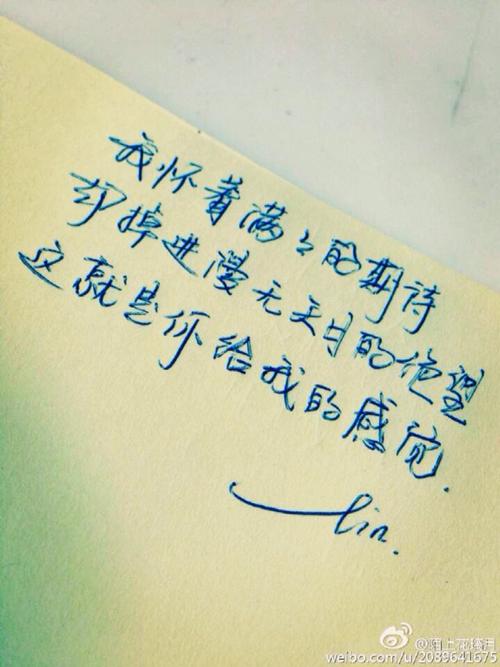 我怀着满々的期待
却掉进漫无天日的绝望
这就是你给我的感觉.
—lin.
@陌上花
weibo.com/u/2089641675